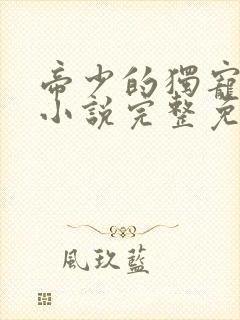 帝少的獨寵
小說完整免
風玖藍